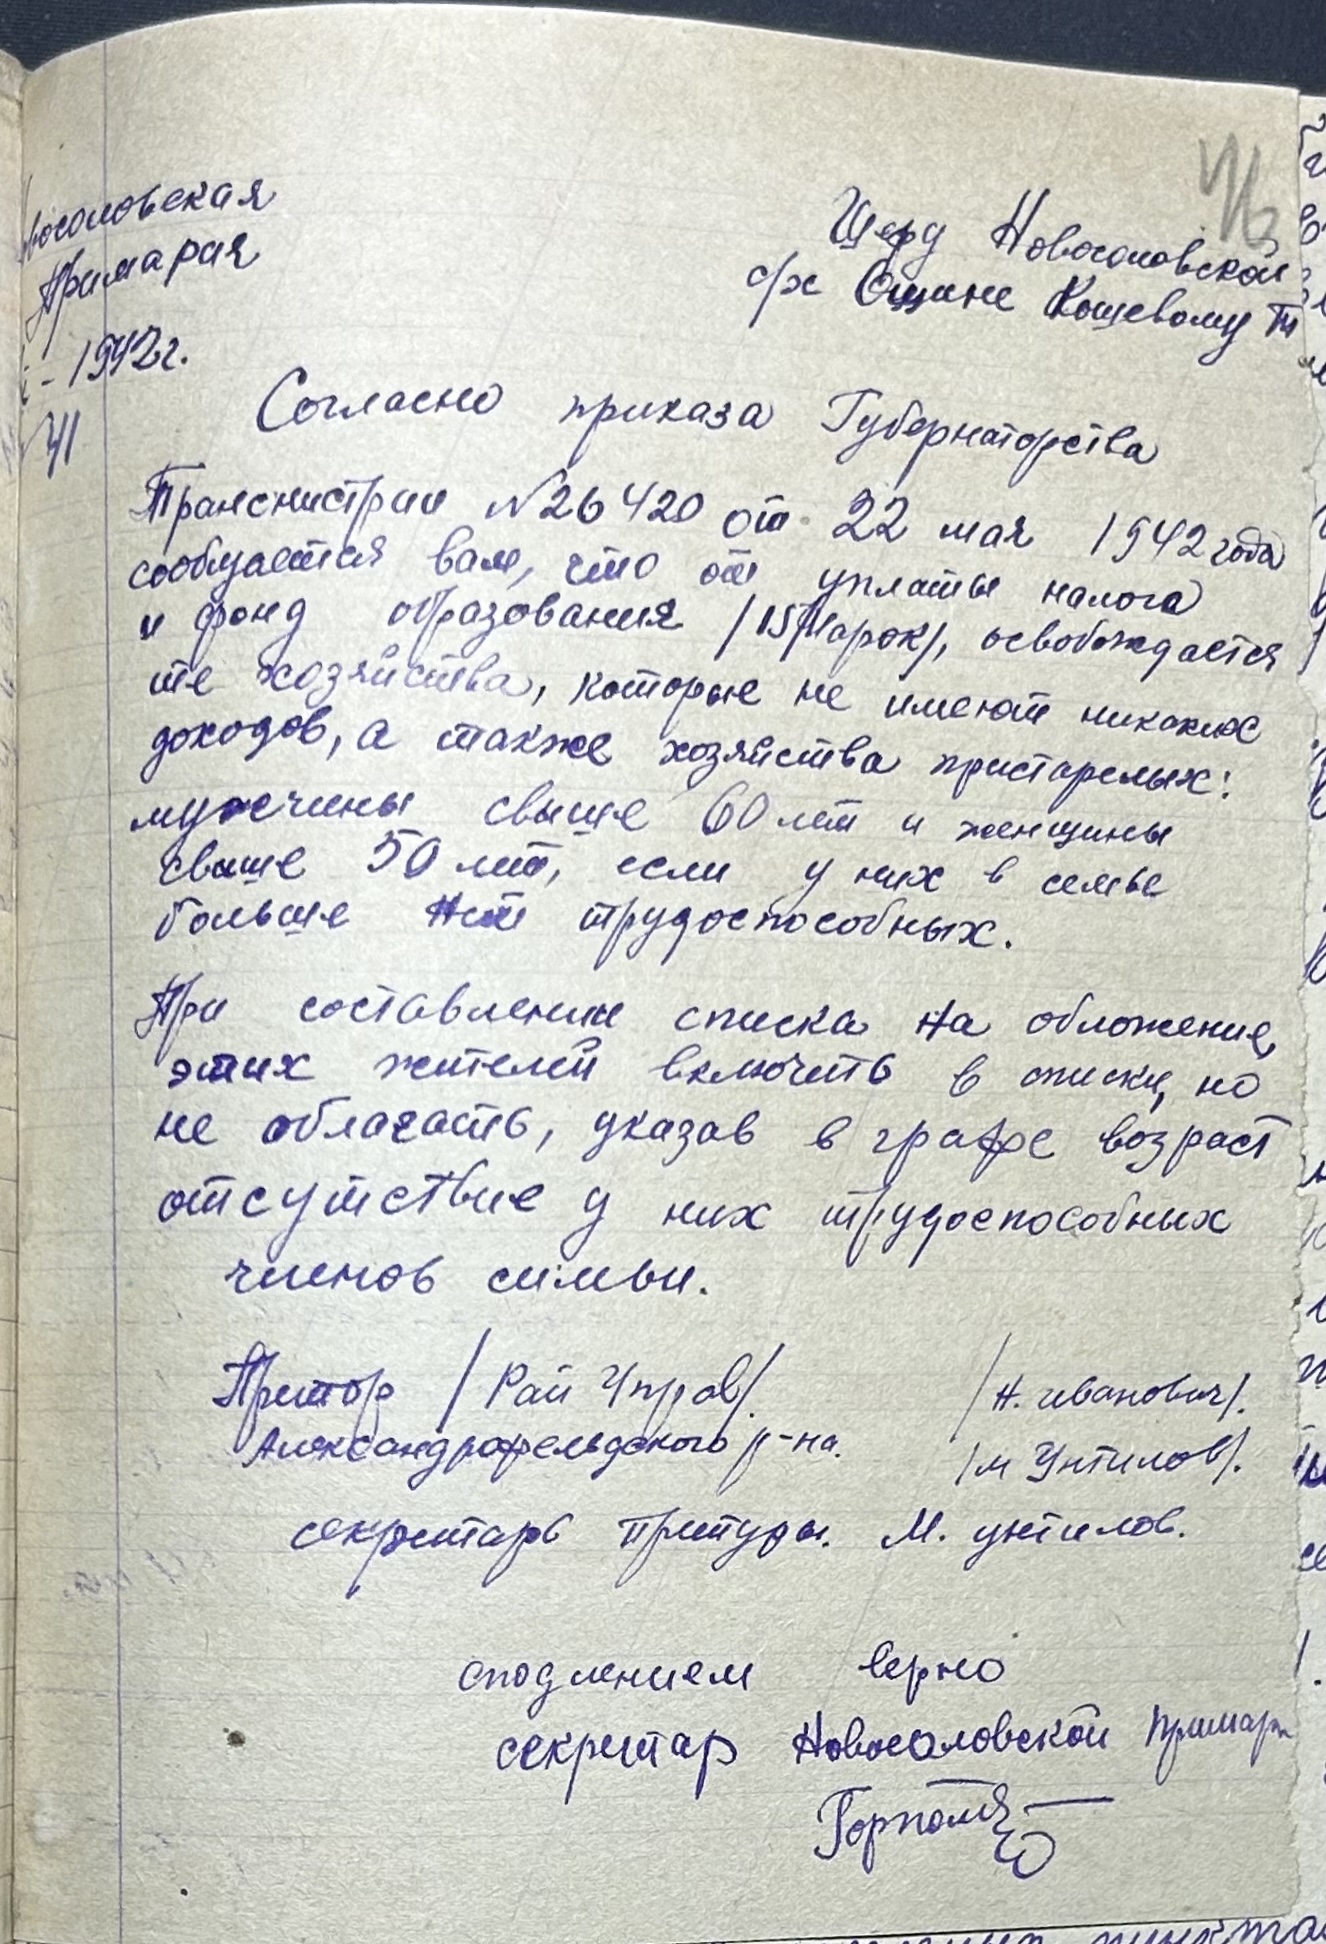 Новосоловская
Примария
- 1942 г.
№ 41
Шефу Новосоловской
с/х Общине Кощевому
Согласно приказа Губернаторства
Транснистрии № 26420 от 22 мая 1942 года
сообщается вам, что от уплаты налога
и фонд образования /15 Марок/, освобождается
те хозяйства, которые не имеют никаких
доходов, а также хозяйства пристарелых:
мужчины свыше 60 лет и женщины
свыше 50 лет, если у них в семье
больше нет трудоспособных.
При составлении списка на обложение,
этих жителей включить в списки, но
не облагать, указав в графе возраст
отсутствие у них трудоспособных
членов семьи.
Претор /Рай Управ/. /Н. Иванович/.
Александрофельдского р-на. /М Унтилов/.
секретарь претуры. М. унтилов.
сподлением верно
секретар Новосоловской примари